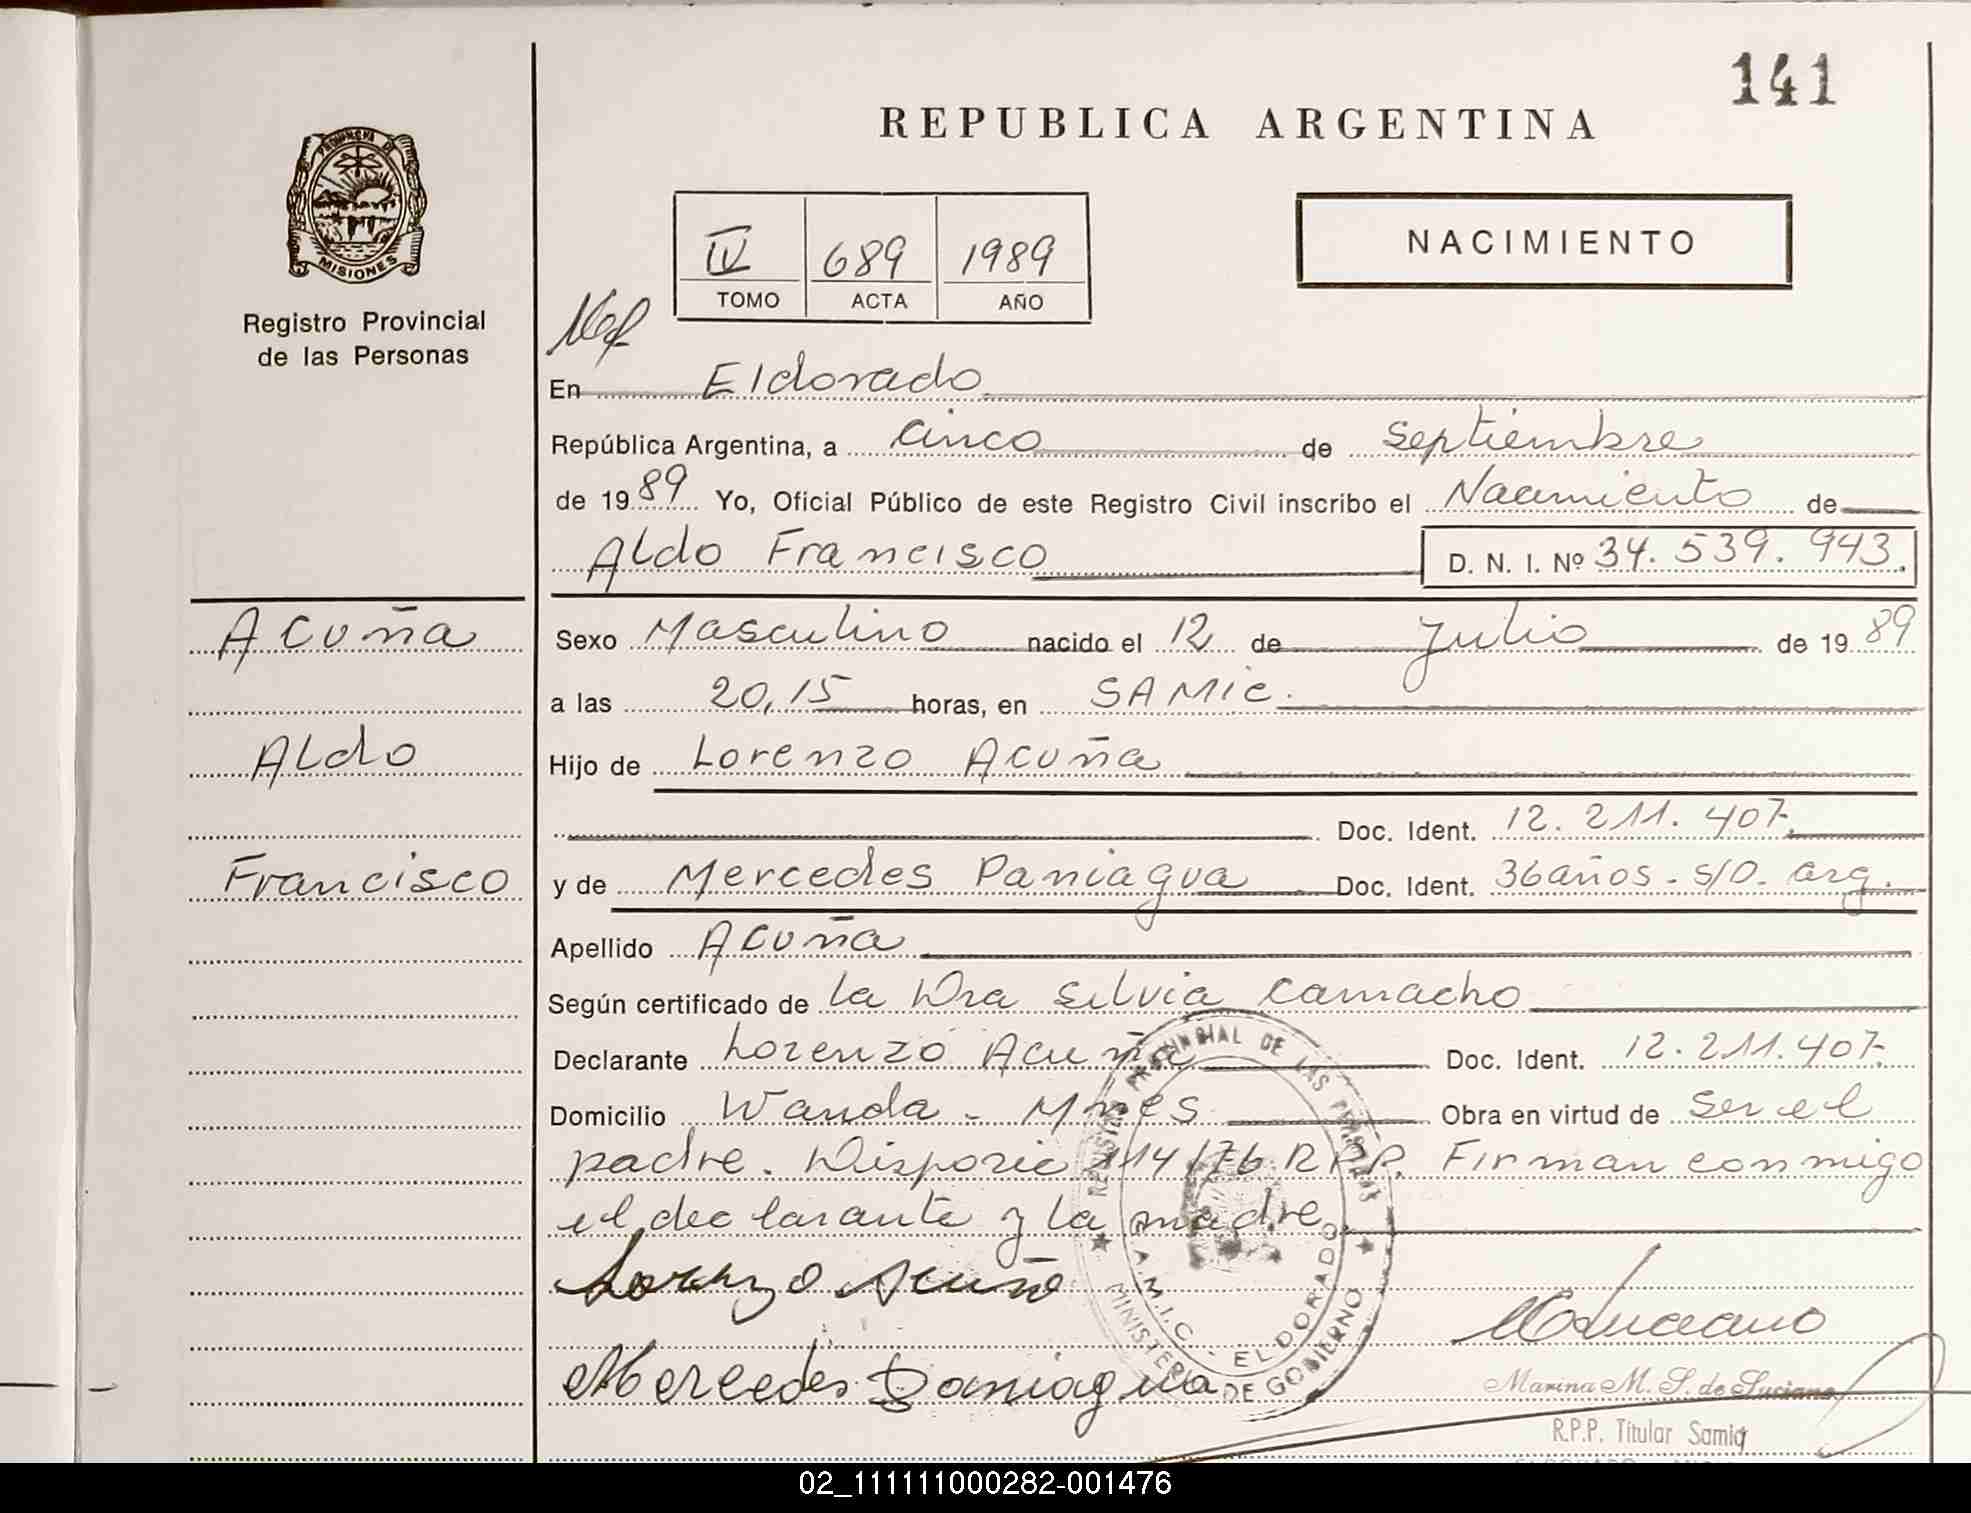 141
REPUBLICA ARGENTINA
PROVINCIA DE
MISIONES
Registro Provincial
de las Personas
IV 689 1989
TOMO ACTA AÑO
NACIMIENTO
En Eldorado
República Argentina, a cinco de septiembre
de 1989 Yo, Oficial Público de este Registro Civil inscribo el Nacimiento de
Aldo Francisco D. N. I. Nº 34.539.943.
Acuña
Aldo
Francisco
Sexo Masculino nacido el 12 de Julio de 1989
a las 20,15 horas, en SAMIC.
Hijo de Lorenzo Acuña
Doc. Ident. 12.211.407.
y de Mercedes Paniagua Doc. Ident. 36 años. s/D. arg.
Apellido Acuña
Según certificado de la Dra Silvia Camacho
Declarante Lorenzo Acuña Doc. Ident. 12.211.407.
Domicilio Wanda - Mnes Obra en virtud de ser el
padre. Disposic 114/76 R.P.P. Firman conmigo
el declarante y la madre.
Lorenzo Acuña
Mercedes Paniagua
REGISTRO PROVINCIAL DE LAS PERSONAS
S.A.M.I.C. - ELDORADO
MINISTERIO DE GOBIERNO
Marina M. S. de Luciano
R.P.P. Titular Samic
02_111111000282-001476